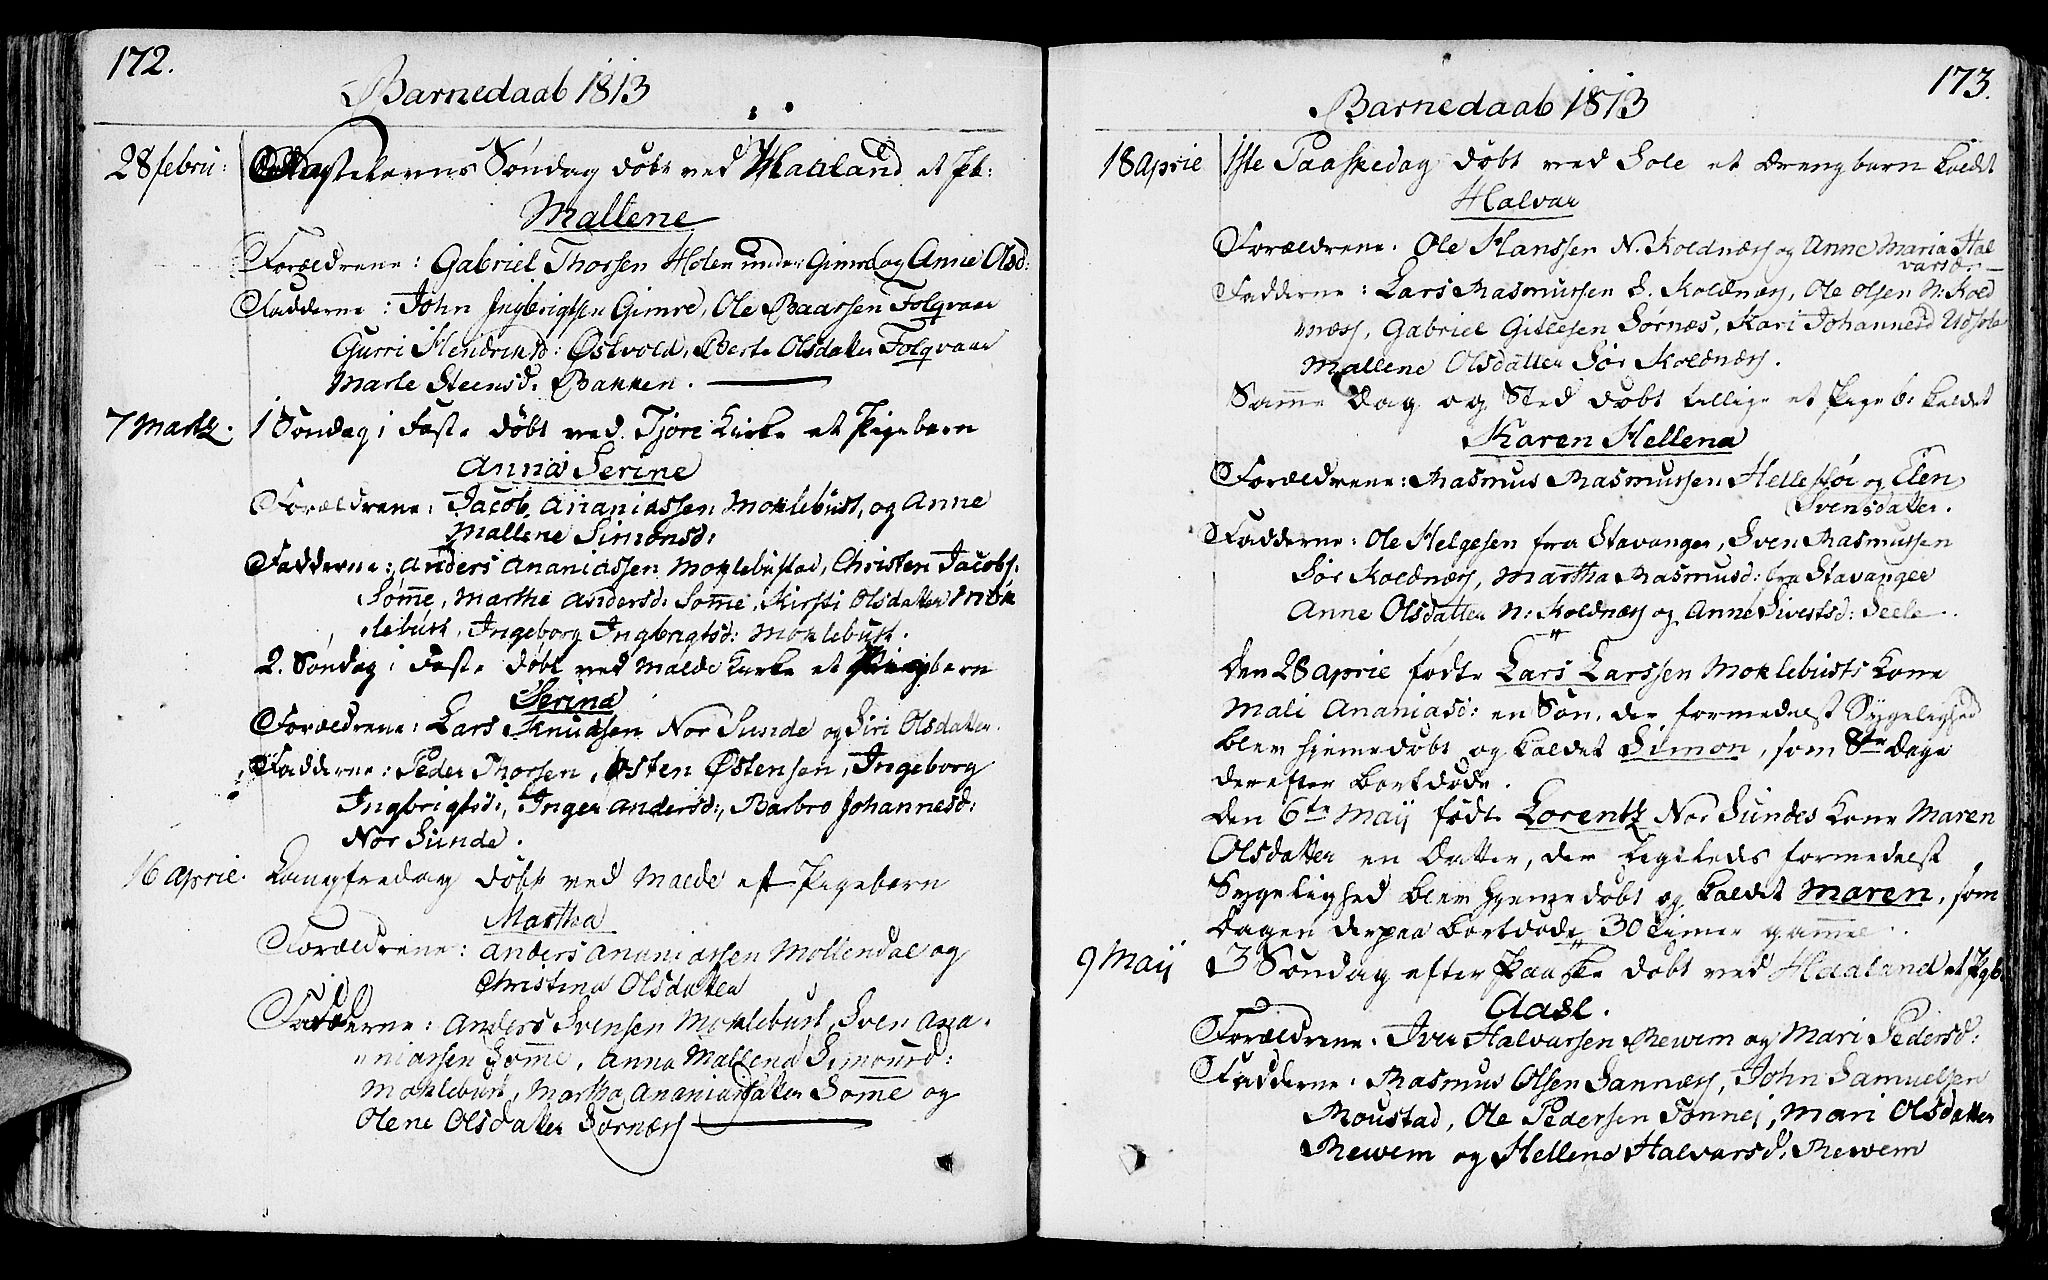 172.
Barnedaab 1813
28 febru: Fastelavns Søndag døbt ved Haaland et Pb:
Mallene
Forældrene: Gabriel Thorsen Holen under Gimre og Anne Olsd:
Fadderne: John Ingbrigtsen Gimre, Ole Baarsen Folqvaar
Gurri Hendrichsd: Østvold, Berte Olsdatter Folqvaar
Marte Steensd. Bakken.
7 Martz. 1 Søndag i Faste døbt ved Tjore Kirke et Pigebarn
Anna Serine
Forældrene: Jacob Ananiassen Moklebust, og Anne
Mallene Simonsd:
Fadderne: Anders Ananiassen Moklebustad, Christen Jacobs.
Somme, Marthe Andersd: Somme, Kirsti Olsdatter Mok
lebust, Ingeborg Ingbrigtsd: Moklebust.
2. Søndag i Faste døbt ved Malde Kirke et Pigebarn
Serina
Forældrene: Lars Knudsen Nor Sunde og Siri Olsdatter.
Fadderne: Peder Thorsen, Østen Østensen, Ingeborg
Ingbrigtsd:, Inger Andersd:, Barbro Johannesd:
Nor Sunde.
16 Aprie. Langfredag døbt ved Malde et Pigebarn
Martha
Forældrene: Anders Ananiassen Mollendal og
Christina Olsdatter
Fadderne: Anders Svensen Moklebust, Sven Ana
niassen Somme, Anna Mallena Simonsd:
Moklebust, Martha Ananiasdatter Somme og
Olene Olsdatter Sornæss
173.
Barnedaab 1813
18 Aprie 1ste Paaskedag døbt ved Sole et Drengbarn kaldt
Halvar
Forældrene: Ole Hanssen N. Koldnæss og Anne Maria Hal
varsd:
Fadderne: Lars Rasmussen S. Koldnæss, Ole Olsen N: Kold
næss, Gabriel Gitlesen Sørnæs, Kari Johannesd Udsole
Mallene Olsdatter Sør Koldnæss.
Samme Dag og Sted døbt tillige et Pigeb: kaldet
Karen Hellena
Forældrene: Rasmus Rasmussen Hellestøi og Elen
Svensdatter.
Fadderne: Ole Helgesen fra Stavanger, Sven Rasmussen
Sør Koldnæss, Martha Rasmusd: fra Stavanger
Anne Olsdatter N: Koldnæss og Anne Sivertsd: Seele.
Den 28 Aprie fødte Lars Larssen Moklebusts Kone
Mali Ananiasd: en Søn, der formedelst Sygelighed
blev hjemedøbt og kaldet Simon, som 8te Dage
derefter bortdøde.
Den 6te Maij fødte Lorentz Nor Sundes Kone Maren
Olsdatter en Datter, der ligeleds formedelst
Sygelighed blev hjemedøbt og kaldet Maren, som
Dagen derpaa bortdøde, 30 Timer gammel.
9 Maij 3 Søndag efter Paaske døbt ved Haaland et Pgb.
Aasl.
Forældrene: Iver Halvarsen Rewem og Mari Pedersd:
Fadderne: Rasmus Olsen Sannæss, John Samuelsen
Roustad, Ole Pedersen Tonnej, Mari Olsdatter
Rewem og Hellene Halvarsd. Rewem